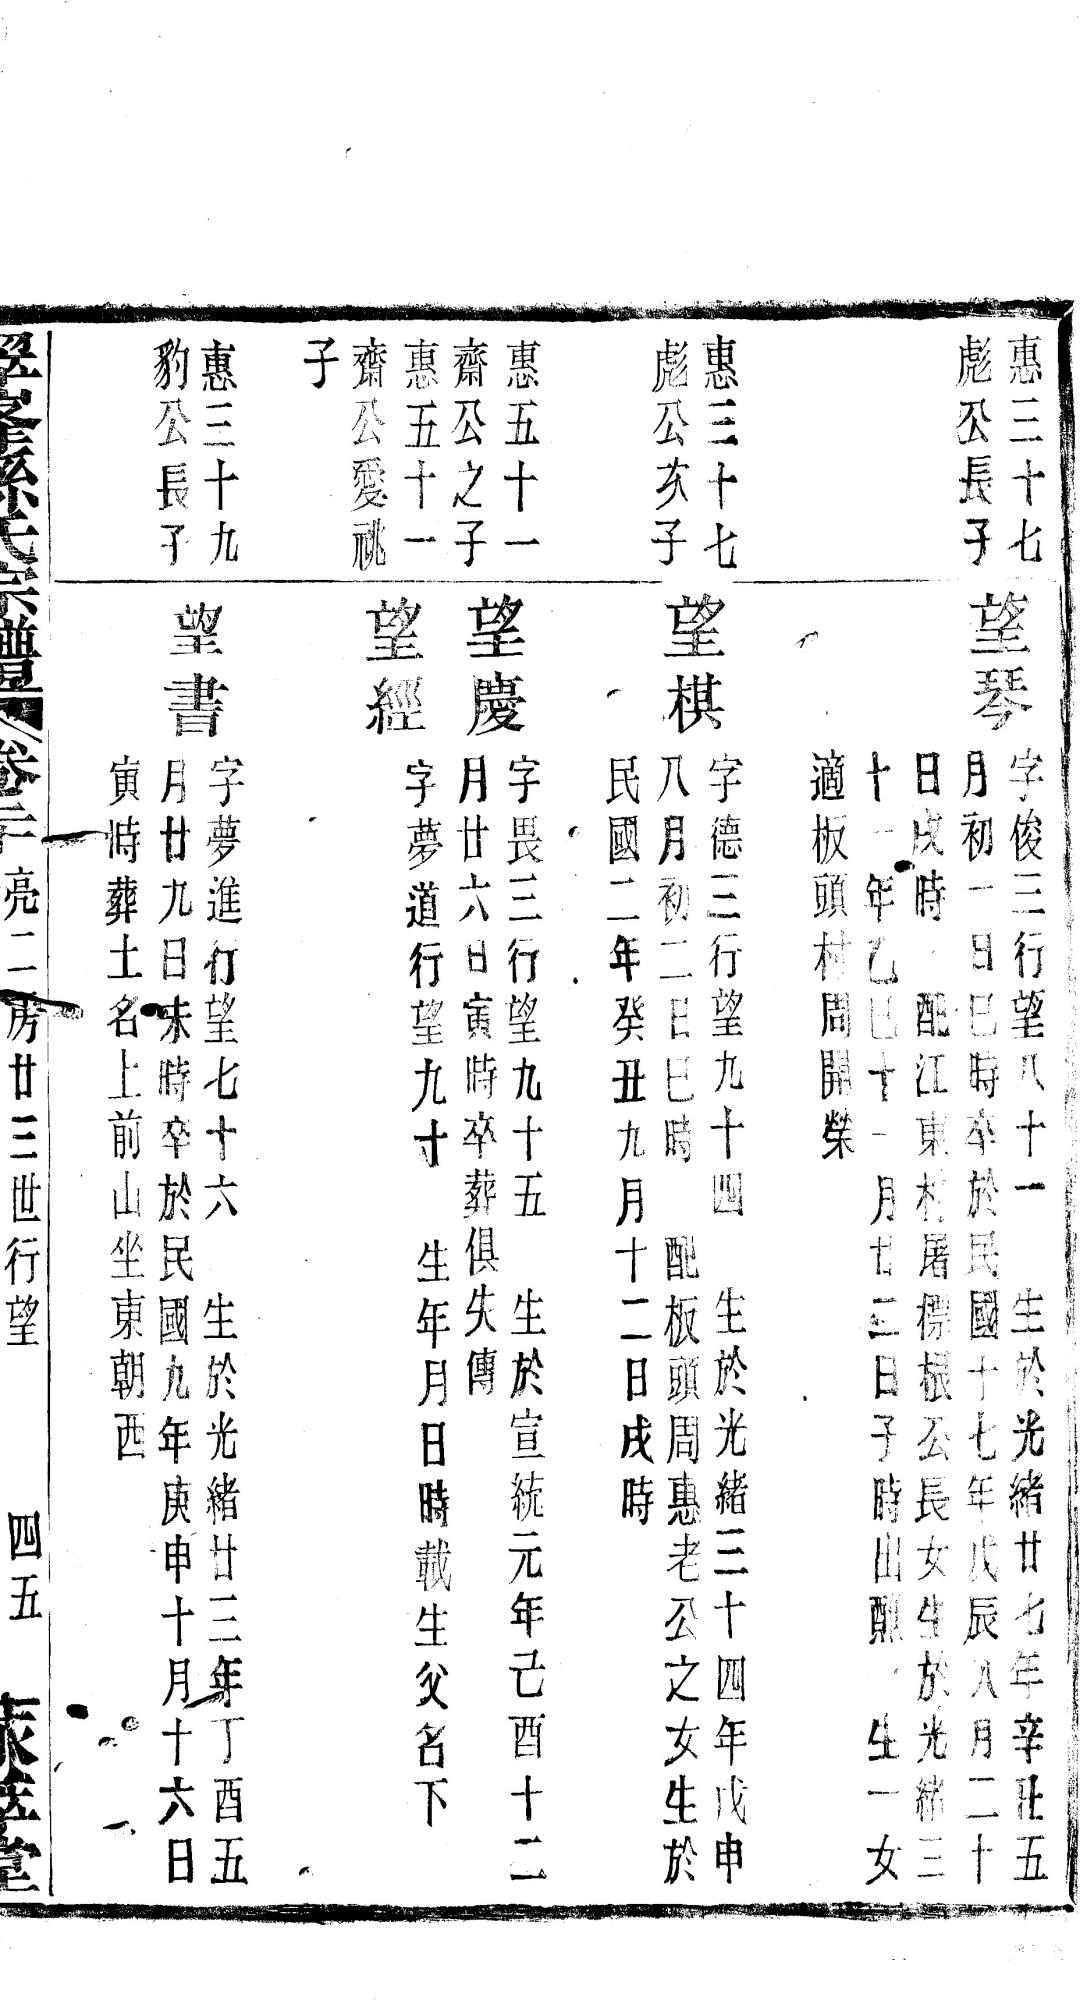 惠三十七
彪公長子
望琴
字俊三行望八十一　生於光緒廿七年辛丑五
月初一日巳時卒於民國十七年戊辰八月二十
日戌時　配江東村屠標根公長女生於光緒三
十一年乙巳十一月廿二日子時出醮　生一女
適板頭村周開榮
惠三十七
彪公次子
望棋
字德三行望九十四　生於光緒三十四年戊申
八月初二日巳時　配板頭周惠老公之女生於
民國二年癸丑九月十二日戌時
惠五十一
齋公之子
望慶
字畏三行望九十五　生於宣統元年己酉十二
月廿六日寅時卒葬俱失傳
惠五十一
齋公愛祧
子
望經
字夢道行望九十　生年月日時載生父名下
惠三十九
豹公長子
望書
字夢進行望七十六　生於光緒廿三年丁酉五
月廿九日未時卒於民國九年庚申十月十六日
寅時葬土名上前山坐東朝西
孫氏宗譜　卷二　亮二房廿三世行望　四五　堂